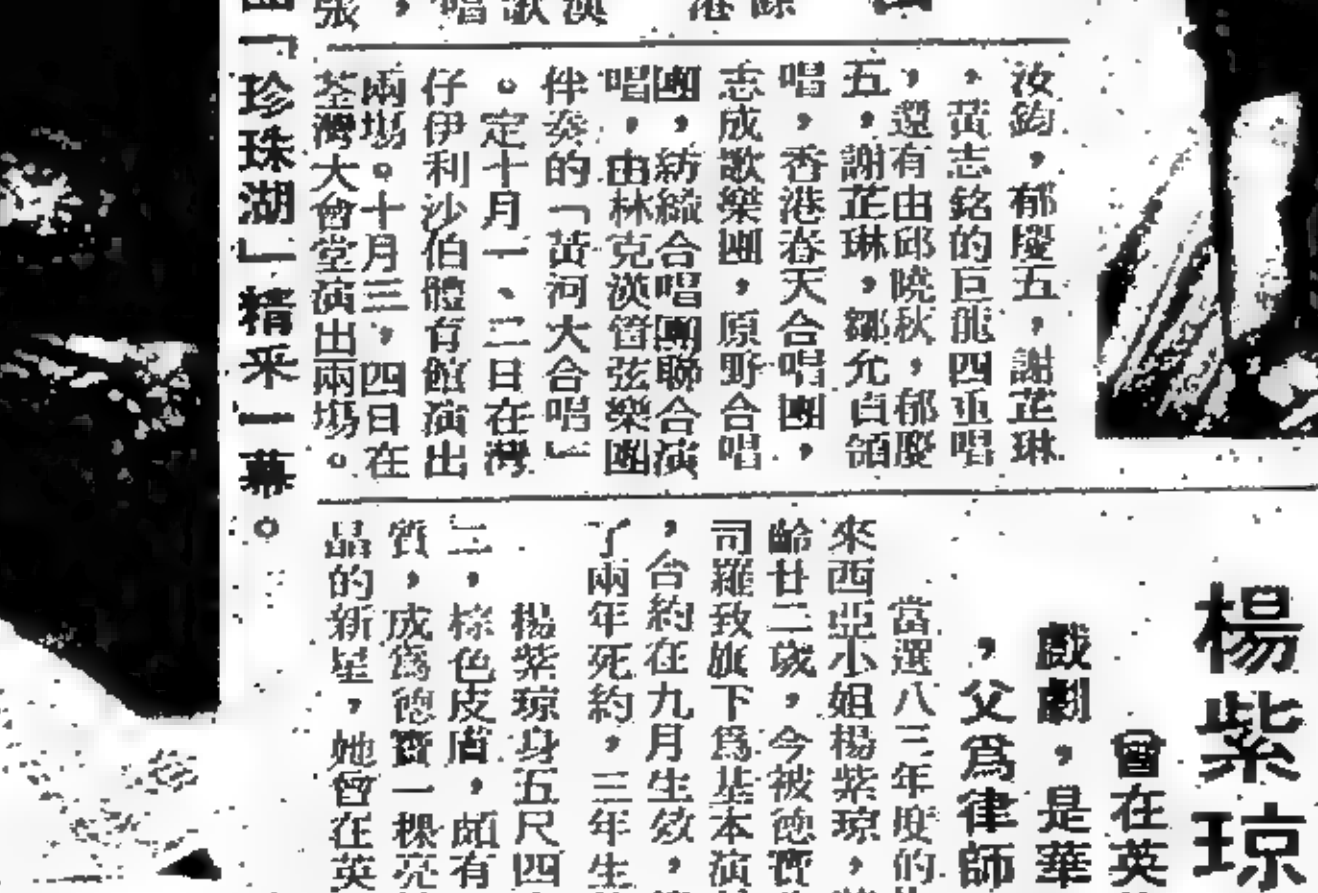 汝鈞，郁慶五，謝芷琳
，黃志銘的巨龍四重唱
，還有由邱曉秋，郁慶
五，謝芷琳，鄒允貞領
唱，香港春天合唱團，
志成歌樂團，原野合唱
團，紡織合唱團聯合演
唱，由林克漢管弦樂團
伴奏的「黃河大合唱」
。定十月一、二日在灣
仔伊利沙伯體育館演出
兩場。十月三，四日在
荃灣大會堂演出兩場。
「珍珠湖」精采一幕。
楊紫琼
曾在英
戲劇，是華
，父為律師
當選八三年度的
來西亞小姐楊紫琼，
齡廿二歲，今被德寶
司羅致旗下為基本演
，合約在九月生效，
了兩年死約，三年生
楊紫琼身五尺四
二，棕色皮膚，頗有
質，成為德寶一棵亮
品的新星，她曾在英